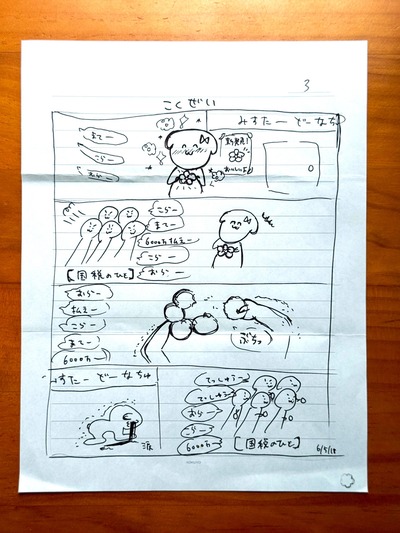 3
こくぜい
みすたーどーなちゅ
まてー
こらー
まてー
新発売!
おいしいよ
こらー
まてー
6000万払えー
こらー
おらー
【国税のひと】
おらー
払えー
こらー
まてー
6000万
ぶちっ
みすたーどーなちゅ
涙
てっしゅうー
てっしゅうー
おらー
こらー
6000万
【国税のひと】